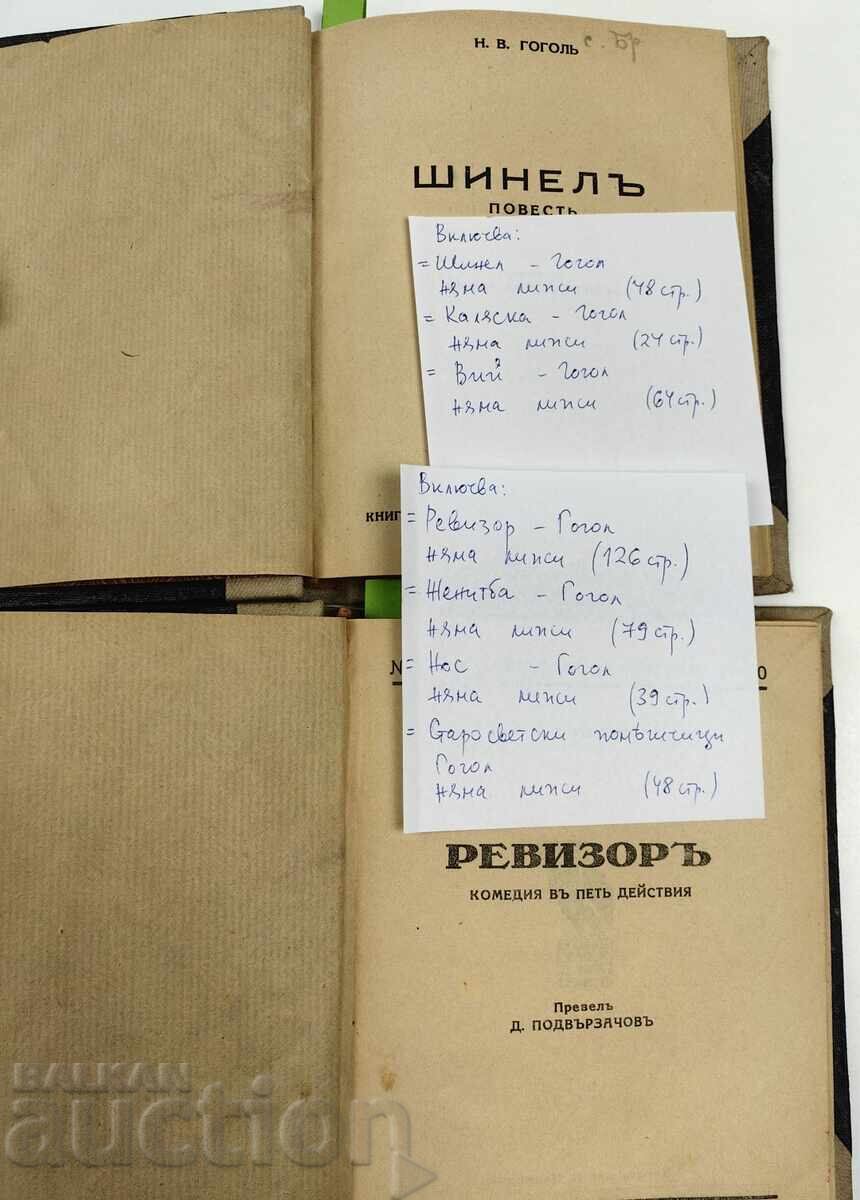 Н. В. ГОГОЛЬ
ШИНЕЛЪ
ПОВЕСТЬ
Включва:
= Шинел - Гогол
няма липси (48 стр.)
= Каляска - Гогол
няма липси (24 стр.)
= Вий - Гогол
няма липси (64 стр.)
КНИГ
Включва:
= Ревизор - Гогол
няма липси (126 стр.)
= Женитба - Гогол
няма липси (79 стр.)
= Нос - Гогол
няма липси (39 стр.)
= Старосветски помѣшчици
Гогол
няма липси (48 стр.)
РЕВИЗОРЪ
КОМЕДИЯ ВЪ ПЕТЬ ДЕЙСТВИЯ
Превелъ
Д. ПОДВЪРЗАЧОВЪ
BALKAN
auction